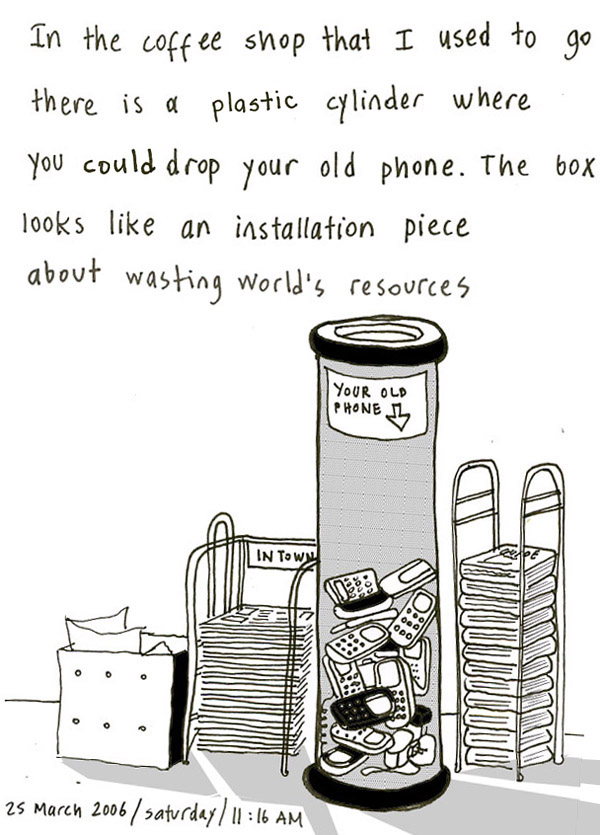 In the coffee shop that I used to go
there is a plastic cylinder where
you could drop your old phone. The box
looks like an installation piece
about wasting world's resources
YOUR OLD
PHONE
IN TOWN
GUIDE
25 March 2006 / saturday / 11:16 AM